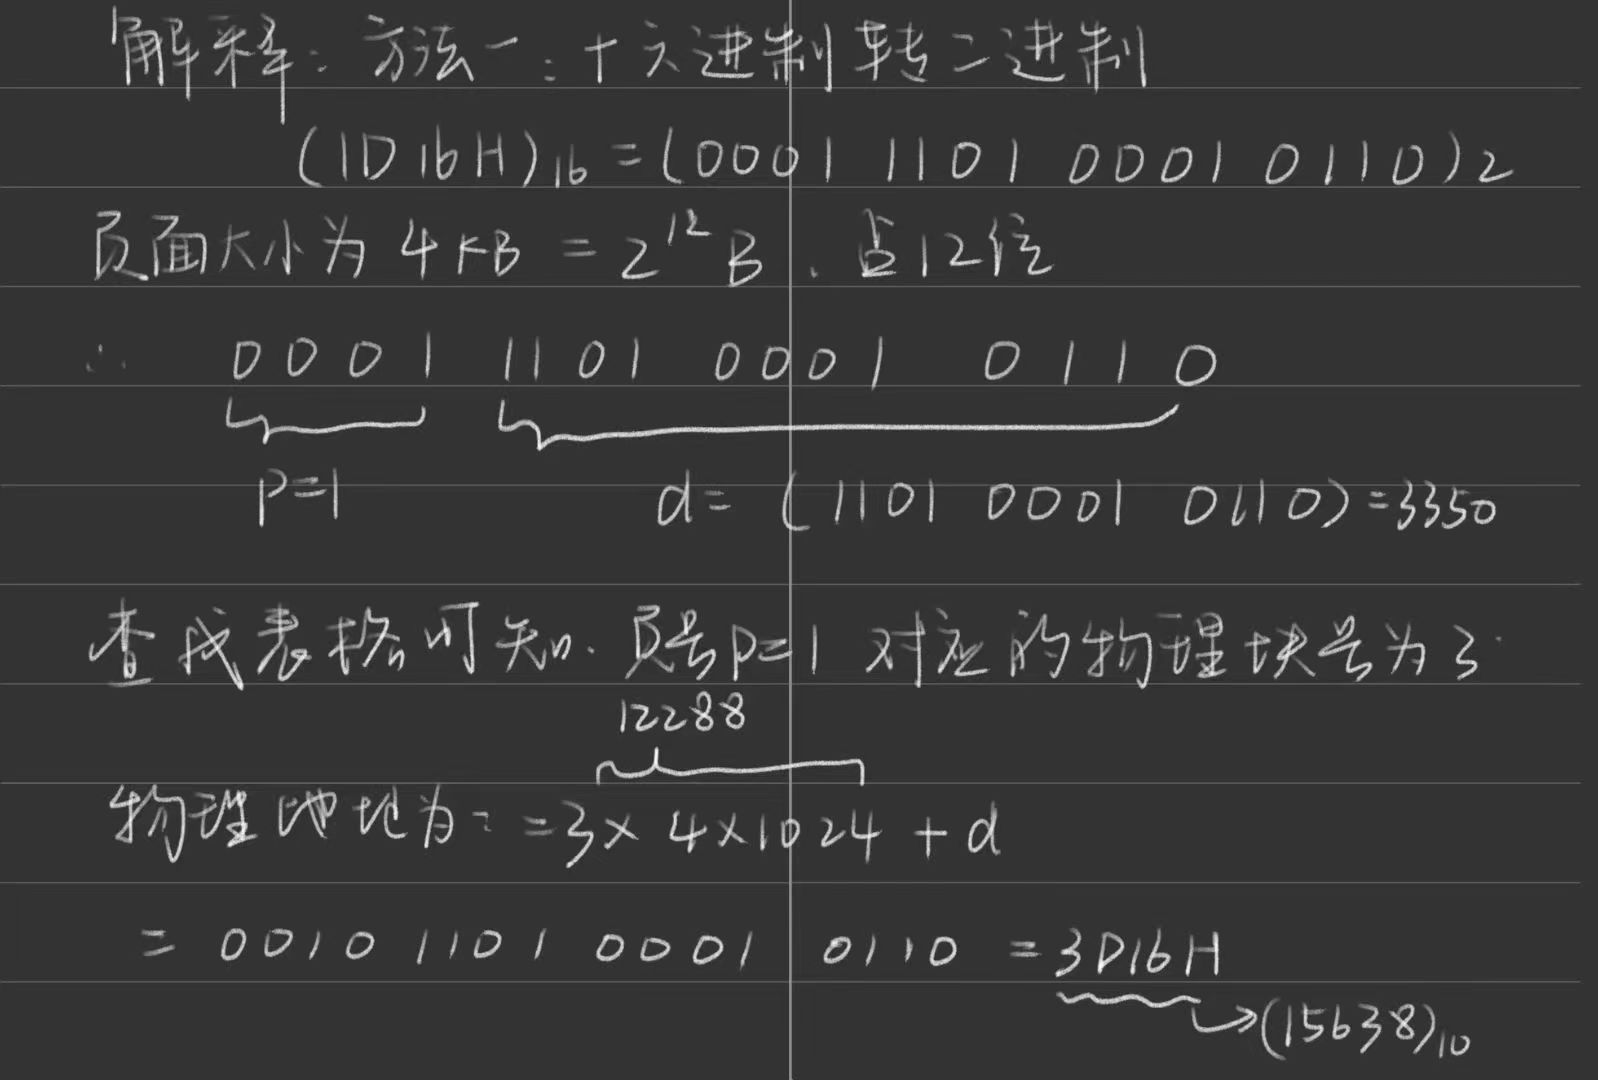 解释：方法一：十六进制转二进制
(1D16H)16 = (0001 1101 0001 0110)2
页面大小为 4KB = 2^12 B . 占12位
∴ 0001 1101 0001 0110
P=1 d= (1101 0001 0110) = 3350
查找表格可知. 页号p=1 对应的物理块号为3.
12288
物理地址为: = 3 × 4 × 1024 + d
= 0010 1101 0001 0110 = 3D16H
→(15638)10